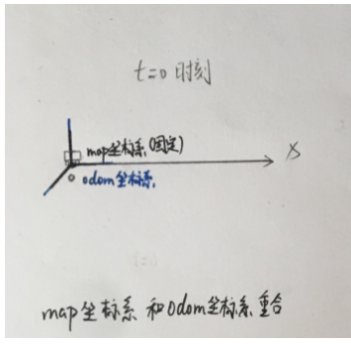 t=0时刻
map坐标系(固定)
X
o odom坐标系
map坐标系和odom坐标系重合